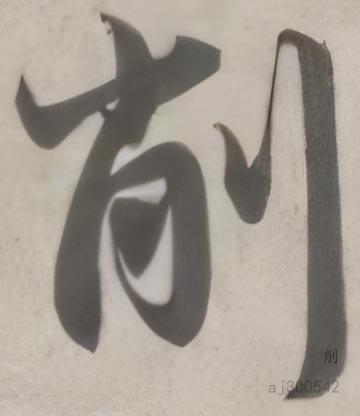 削
削
aj300542